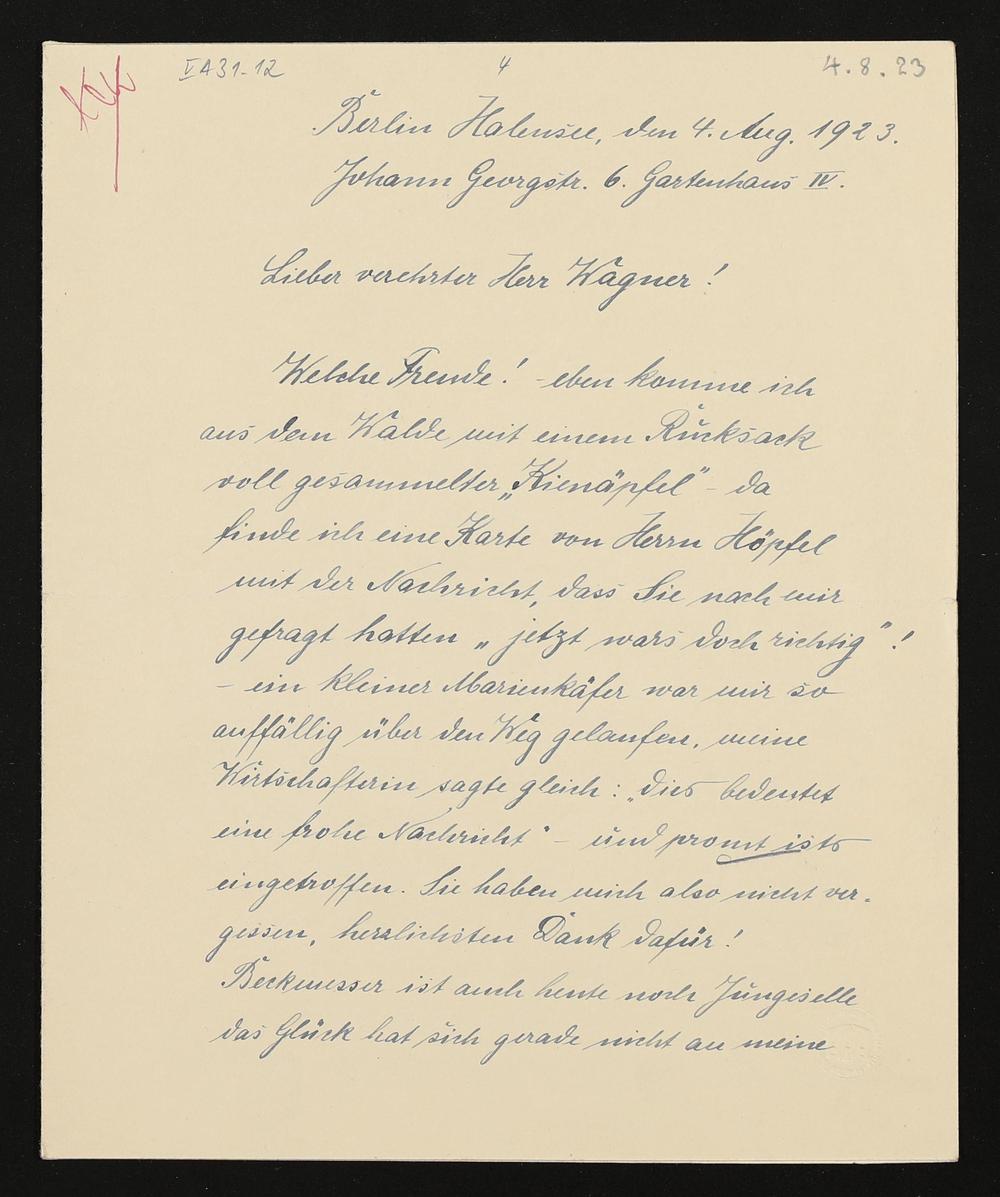 V A 31-12 4 4.8.23
Berlin Halensee, den 4. Aug. 1923.
Johann Georgstr. 6. Gartenhaus IV.
Lieber verehrter Herr Wagner!
Welche Freude! - eben komme ich
aus dem Walde mit einem Rucksack
voll gesammelter „Kienäpfel" - da
finde ich eine Karte von Herrn Höpfel
mit der Nachricht, dass Sie nach mir
gefragt hatten „jetzt wars doch richtig"!
- ein kleiner Marienkäfer war mir so
auffällig über den Weg gelaufen, meine
Wirtschafterin sagte gleich: „dies bedeutet
eine frohe Nachricht" - und promt ists
eingetroffen. Sie haben mich also nicht ver-
gessen, herzlichsten Dank dafür!
Beckmesser ist auch heute noch Jungeselle
das Glück hat sich gerade nicht an meine